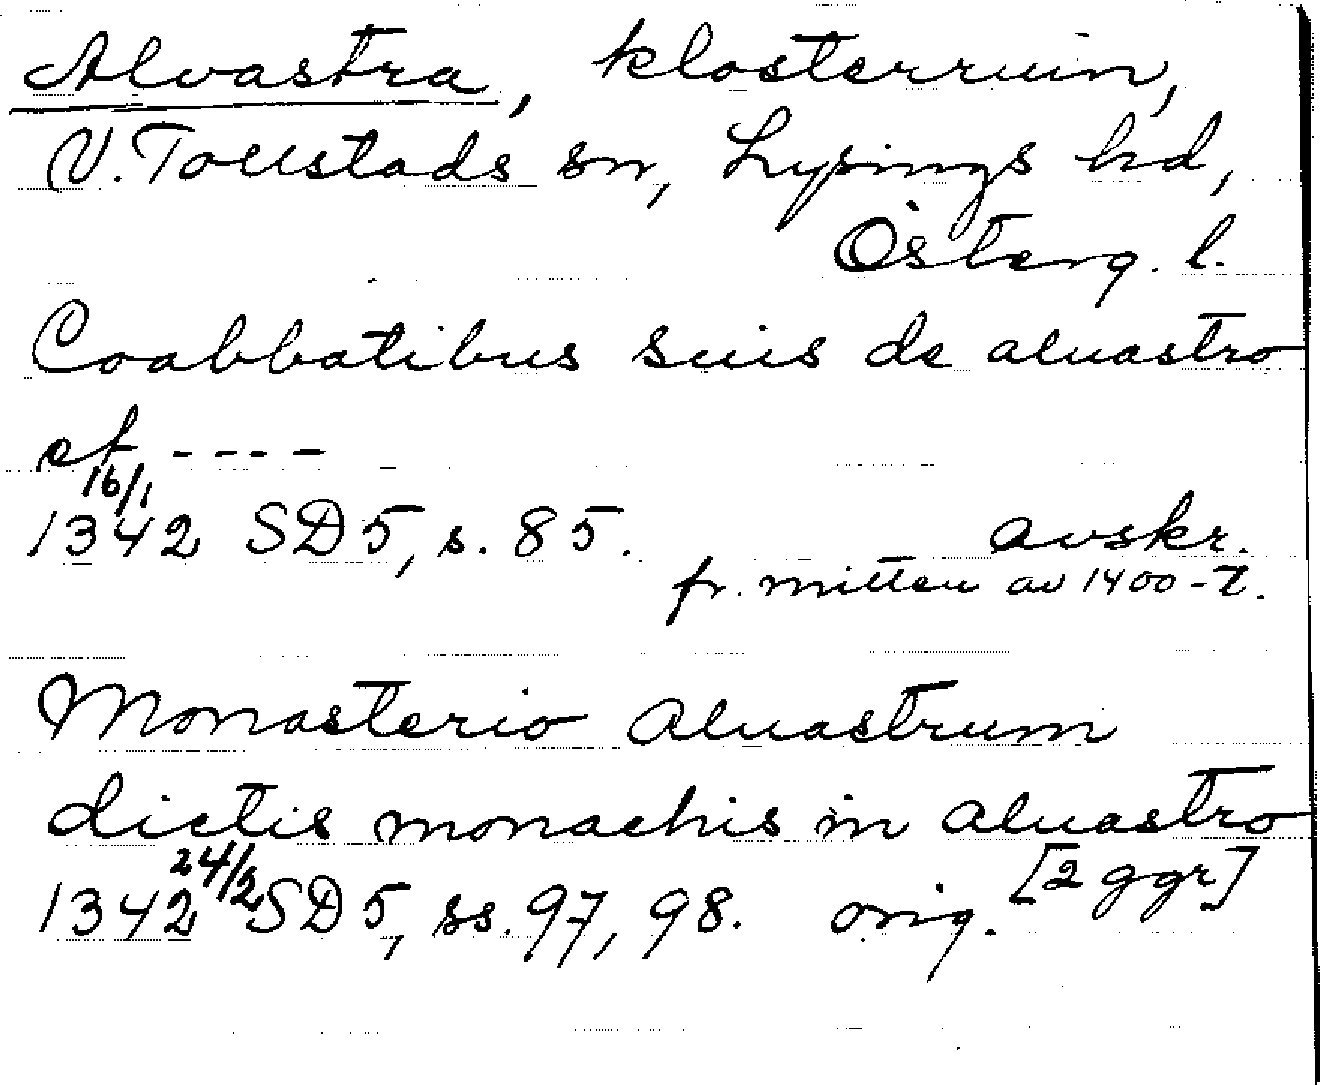 Alvastra, klosterruin,
V. Tollstads sn, Lysings hd,
Österg. l.
Coabbatibus suis de aluastro
et ----
16/1
1342 SD 5, s. 85. avskr.
fr. mitten av 1400-t.
Monasterio Aluastrum
dictis monachis in aluastro
24/2 [2 ggr]
1342 SD 5, ss. 97, 98. orig.